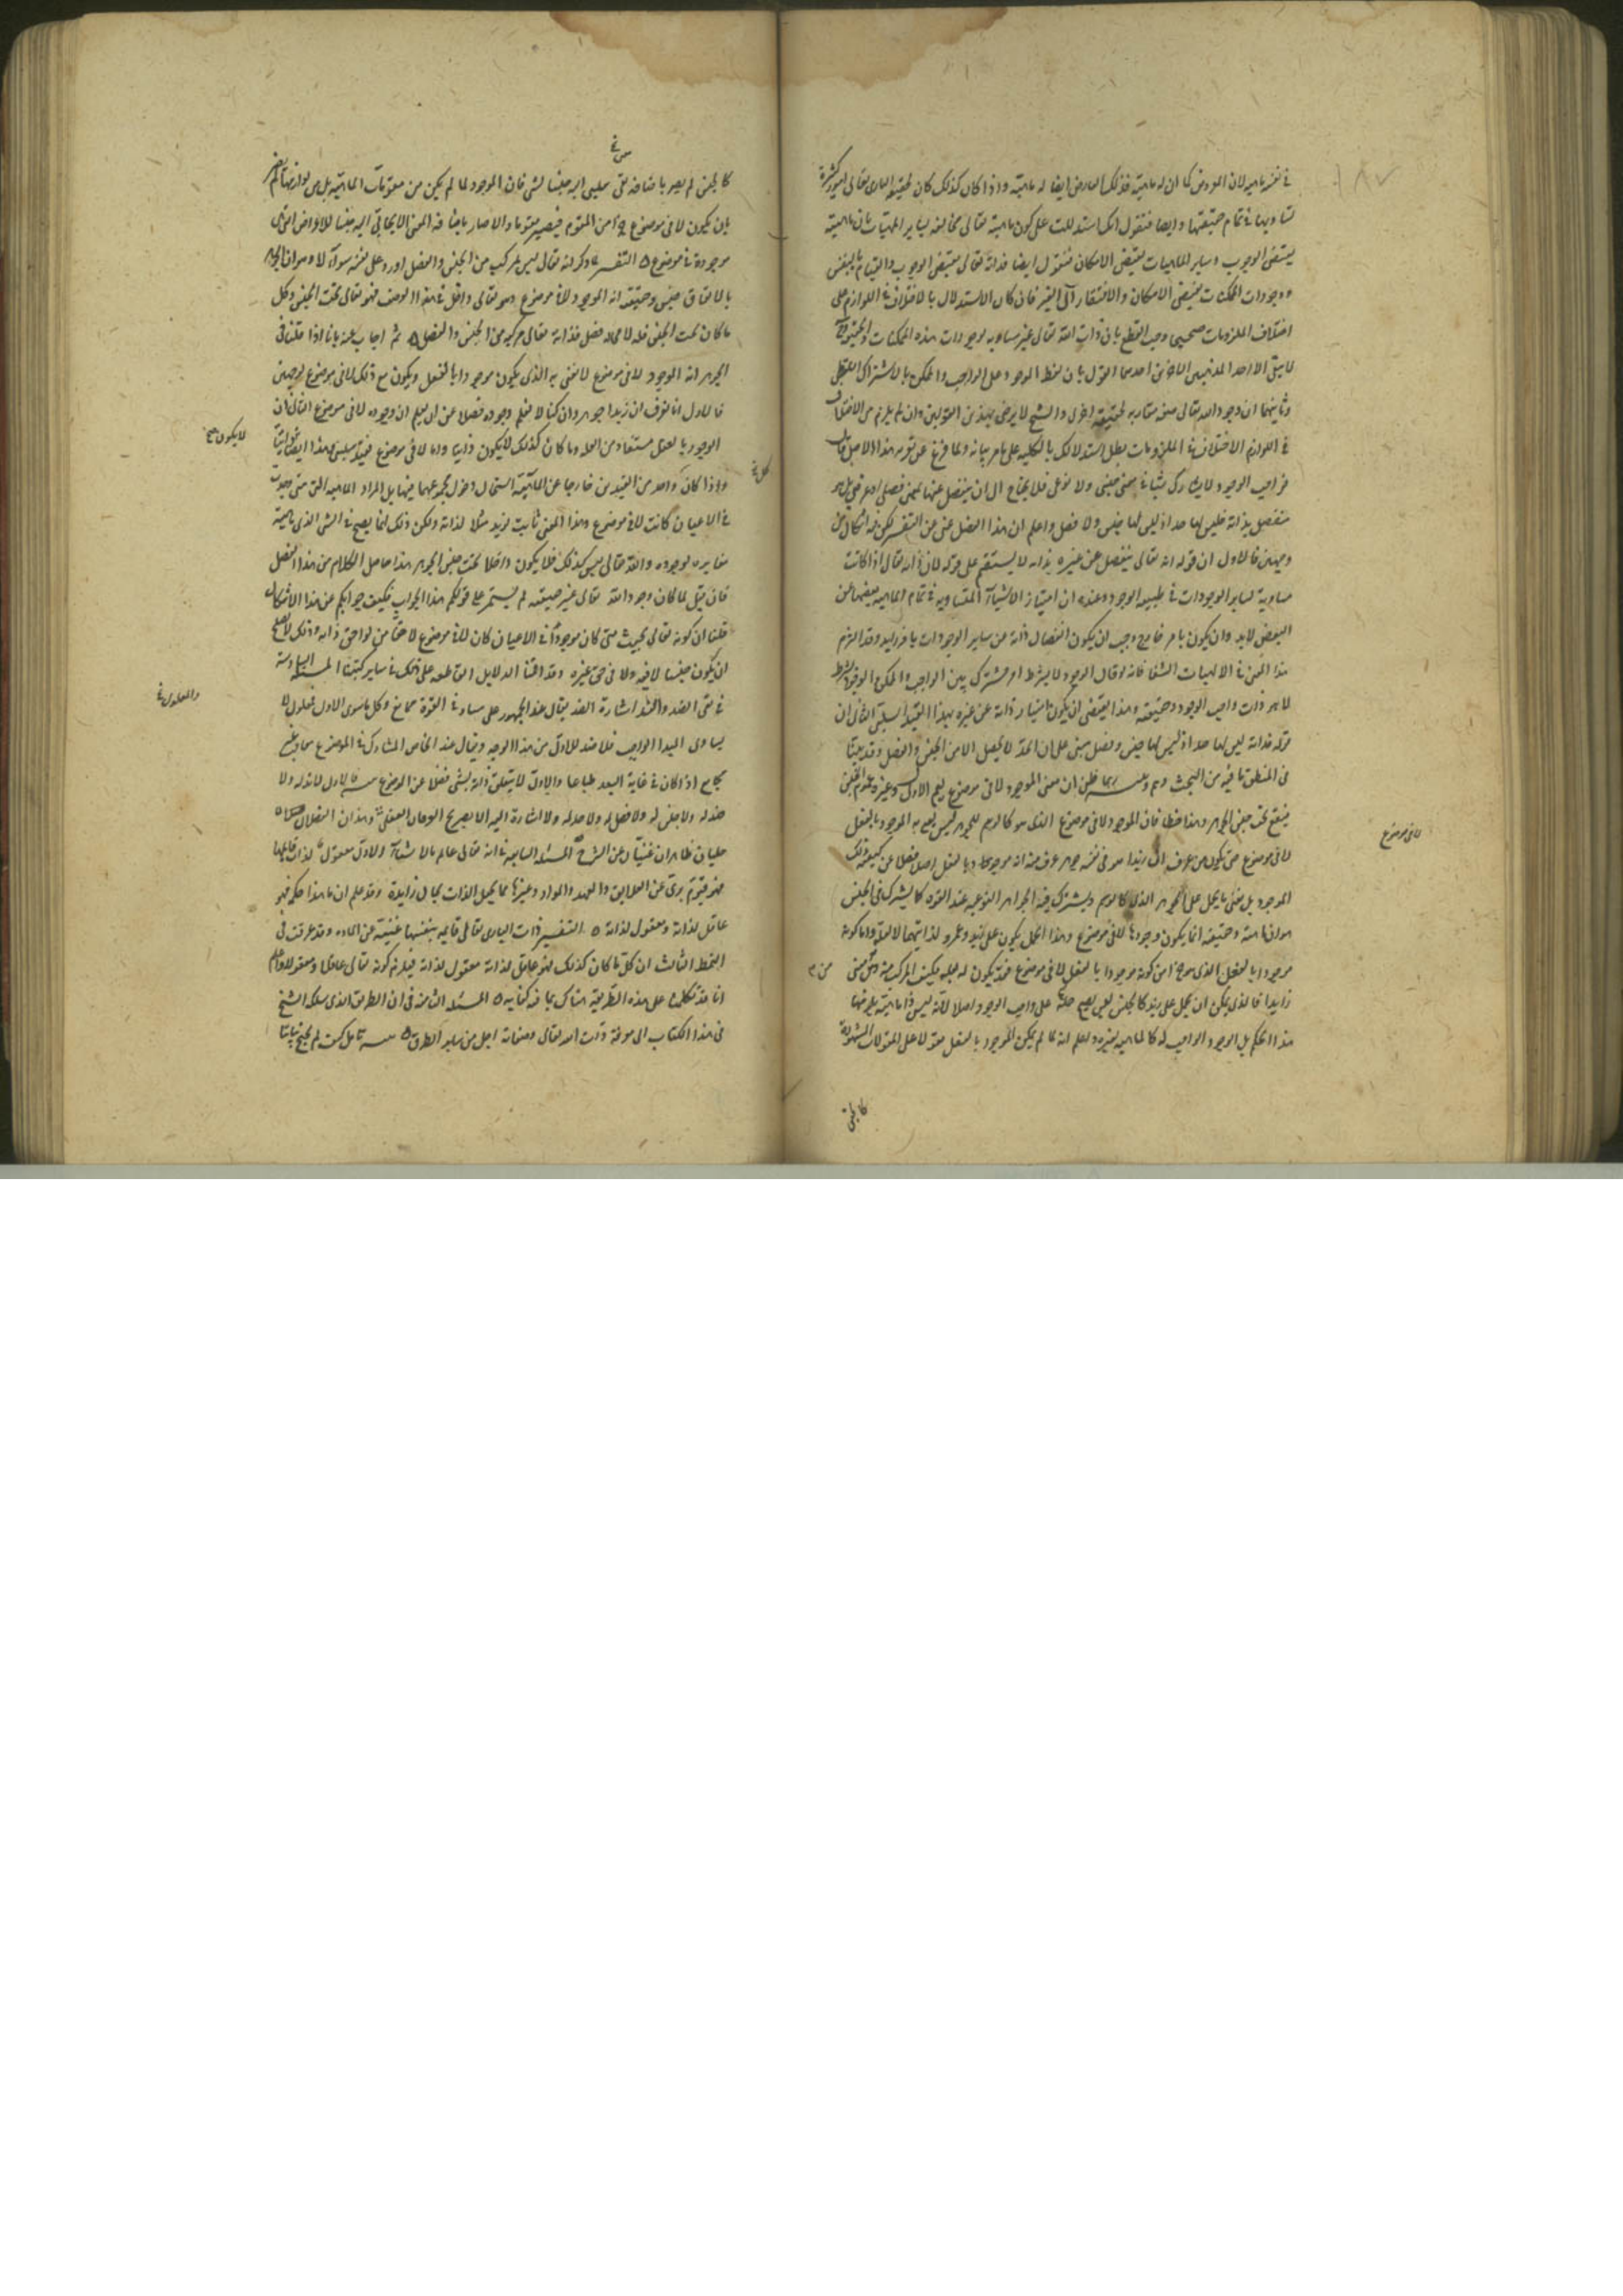 في نفسه ماهية لان العروض كما ان له ماهية فذلك العارض ايضا له ماهية واذا كان كذلك كان لحقيقة البارى تعالى امور كثيرة
تساويها في تمام حقيقتها وايضا فنقول انك استدللت على كون ماهيته تعالى مخالفة لساير الماهيات بان ماهيته
يقتضى الوجوب وساير الماهيات يقتضى الامكان فنقول ايضا ذاته تعالى يقتضى الوجوب والقيام بالنفس
ووجودات الممكنات يقتضى الامكان والافتقار الى الغير فان كان الاستدلال بالاختلاف في اللوازم على
اختلاف الملزومات صحيحا وجب القطع بان ذات الله تعالى غير مساوية لوجودات هذه الممكنات
لا يبقى الا احد المذهبين الاخرين احدهما القول بان لفظ الوجود على الواجب والممكن بالاشتراك اللفظى
وثانيهما ان وجود الله تعالى صفة مقارنة لحقيقة اخرى والشيخ لا يرضى بهذين القولين وان لم يلزم من الاختلاف
في اللوازم الاختلاف في الملزومات بطل استدلالك بالكلية على ما مر بيانه ولما فرغ عن تقرير هذا الاصل قال
فواجب الوجود لا يشارك شيئا في معنى جنسى ولا نوعى فلا يحتاج الى ان ينفصل عنها بمعنى فصلى او عرضى بل هو
منفصل بذاته فليس لها حد اذ ليس لها جنس ولا فصل واعلم ان هذا الفصل غنى عن التفسير لكن فيه اشكال من
وجهين فالاول ان قوله انه تعالى ينفصل عن غيره بذاته لا يستقيم على قوله لان ذاته تعالى اذا كانت
مساوية لساير الموجودات في طبيعة الوجود وعنده ان امتياز الاشياء المتساوية في تمام الماهية بعضها عن
البعض لابد وان يكون بامر خارج وجب ان يكون انفصال ذاته عن ساير الوجودات بامر زايد وقد التزم
هذا المعنى في الالهيات الشفا فانه قال الوجود لا بشرط امر مشترك بين الواجب والممكن والوجود بشرط
لا هو ذات واجب الوجود وحقيقته وهذا يقتضى ان يكون امتياز ذاته عن غيره بهذا القيد السلبى الثانى ان
قوله فذاته ليس لها حد اذ ليس لها جنس وفصل مبنى على ان الحد لا يحصل الا من الجنس والفصل وقد بينا
في المنطق ما فيه من البحث وهم وتنبيه ربما ظن ان معنى الموجود لا في موضوع يعم الاول وغيره عموم الجنس
فيقع تحت جنس الجوهر وهذا خطا فان الموجود لا في موضوع الذى هو كالرسم للجوهر ليس يعنى به الموجود بالفعل
لا في موضوع حتى يكون من عرف ان زيدا هو في نفسه جوهر عرف منه انه موجود بالفعل اصلا فضلا عن كيفية ذلك
الوجود بل معنى ما يحمل على الجوهر الذى كالرسم ويشترك فيه الجواهر النوعية عند القوة كما يشترك في الجنس
هو انه ماهية وحقيقة انما يكون وجودها لا في موضوع وهذا الحمل يكون على زيد وعمرو لذاتيهما لا لعلة واما كونه
موجودا بالفعل الذى هو جزء من كونه موجودا بالفعل لا في موضوع فقد يكون له بعلة فكيف المركب منه ومن معنى
زايد فالذى يمكن ان يحمل على زيد كالجنس ليس يصح حمله على واجب الوجود اصلا لانه ليس ذا ماهية يلزمها
هذا الحكم بل الوجود الواجب له كالماهية لغيره واعلم انه لما لم يكن الموجود بالفعل مقولا على المقولات المشهورة
كالجنس
لا في موضوع
من
كالجنس لم يصر باضافة معنى سلبى اليه جنسا لشى فان الموجود لما لم يكن من مقومات الماهية بل من لوازمها لم يصر
بان يكون لا في موضوع جزءا من المقوم فيصير مقوما والا لصار باضافة المعنى الايجابى اليه جنسا للاعراض التى هى
موجودة في موضوع التفسير لما ذكر انه تعالى ليس بمركب من الجنس والفصل اورد على نفسه سوالا وهو ان الجوهر
بالاتفاق جنس وحقيقته انه الموجود لا في موضوع وهو تعالى داخل في هذا الوصف فهو تعالى تحت الجنس وكل
ما كان تحت الجنس فله لا محالة فصل فذاته تعالى مركبة من الجنس والفصل ثم اجاب عنه بانا اذا قلنا في
الجوهر انه الموجود لا في موضوع لا نعنى به الذى يكون موجودا بالفعل ويكون مع ذلك لا في موضوع لوجهين
فالاول انا نعرف ان زيدا جوهر وان كنا لا نعلم وجوده فضلا عن ان يعلم ان وجوده لا في موضوع الثانى ان
الوجود بالفعل مستفاد من العلة وما كان كذلك لا يكون ذاتيا واما لا في موضوع فقيد سلبى فهذا ايضا
واذا كان واحد من القيدين خارجا عن الماهية استحال دخول مجموعهما فيها بل المراد الماهية التى متى وجدت
في الاعيان كانت لا في موضوع وهذا المعنى ثابت لزيد مثلا لذاته ولكن ذلك انما يصح في الشى الذى ماهيته
مغايرة لوجوده والله تعالى ليس كذلك فلا يكون داخلا تحت جنس الجوهر هذا حاصل الكلام من هذا الفصل
فان قيل لما كان وجود الله تعالى غير حقيقته لم يستمر على قولكم هذا الجواب فكيف جوابكم عن هذا الاشكال
قلنا ان كونه تعالى بحيث متى كان موجودا في الاعيان كان لا في موضوع لاحقا من لواحق ذاته وذلك لا يصلح
ان يكون جنسا لا فيه ولا في حق غيره وقد اقمنا الدلايل القاطعة على ذلك في ساير كتبنا المسئلة السادسة
في نفى الضد والند اشارة الضد يقال عند الجمهور على مساو في القوة ممانع وكل ما سوى الاول معلول لا
يساوى المبدا الواجب فلا ضد للاول من هذا الوجه ويقال عند الخاص لمشارك في الموضوع معاقب غير
مجامع اذا كان في غاية البعد طباعا والاول لا يتعلق ذاته بشى فضلا عن الموضوع تنبيه فالاول لا ند له ولا
ضد له ولا جنس له ولا فصل له ولا حد له ولا اشارة اليه الا بصريح العرفان العقلى وهذان الفصلان
جليان ظاهران غنيان عن الشرح المسئلة السابعة في انه تعالى عالم بالاشياء والاول معقول لذاته قايمها
فهو قيوم برئ عن العلايق والعهد والمواد وغيرها مما يجعل الذات بحال زايدة وقد علم ان ما هذا حكمه فهو
عاقل لذاته ومعقول لذاته التفسير ذات البارى تعالى قايمة بنفسها غنية عن المادة وقد عرفت في
النمط الثالث ان كل ما كان كذلك فهو عاقل لذاته معقول لذاته فيلزم كونه تعالى عاقلا ومعقولا واعلم
انا قد تكلمنا على هذه الطريقة هناك بما فيه كفاية المسئلة الثامنة في ان الطريق الذى سلكه الشيخ
في هذا الكتاب الى معرفة ذات الله تعالى وصفاته اجل من ساير الطرق تنبيه تامل كيف لم يحتج بياننا
لا يكون
والمعلول